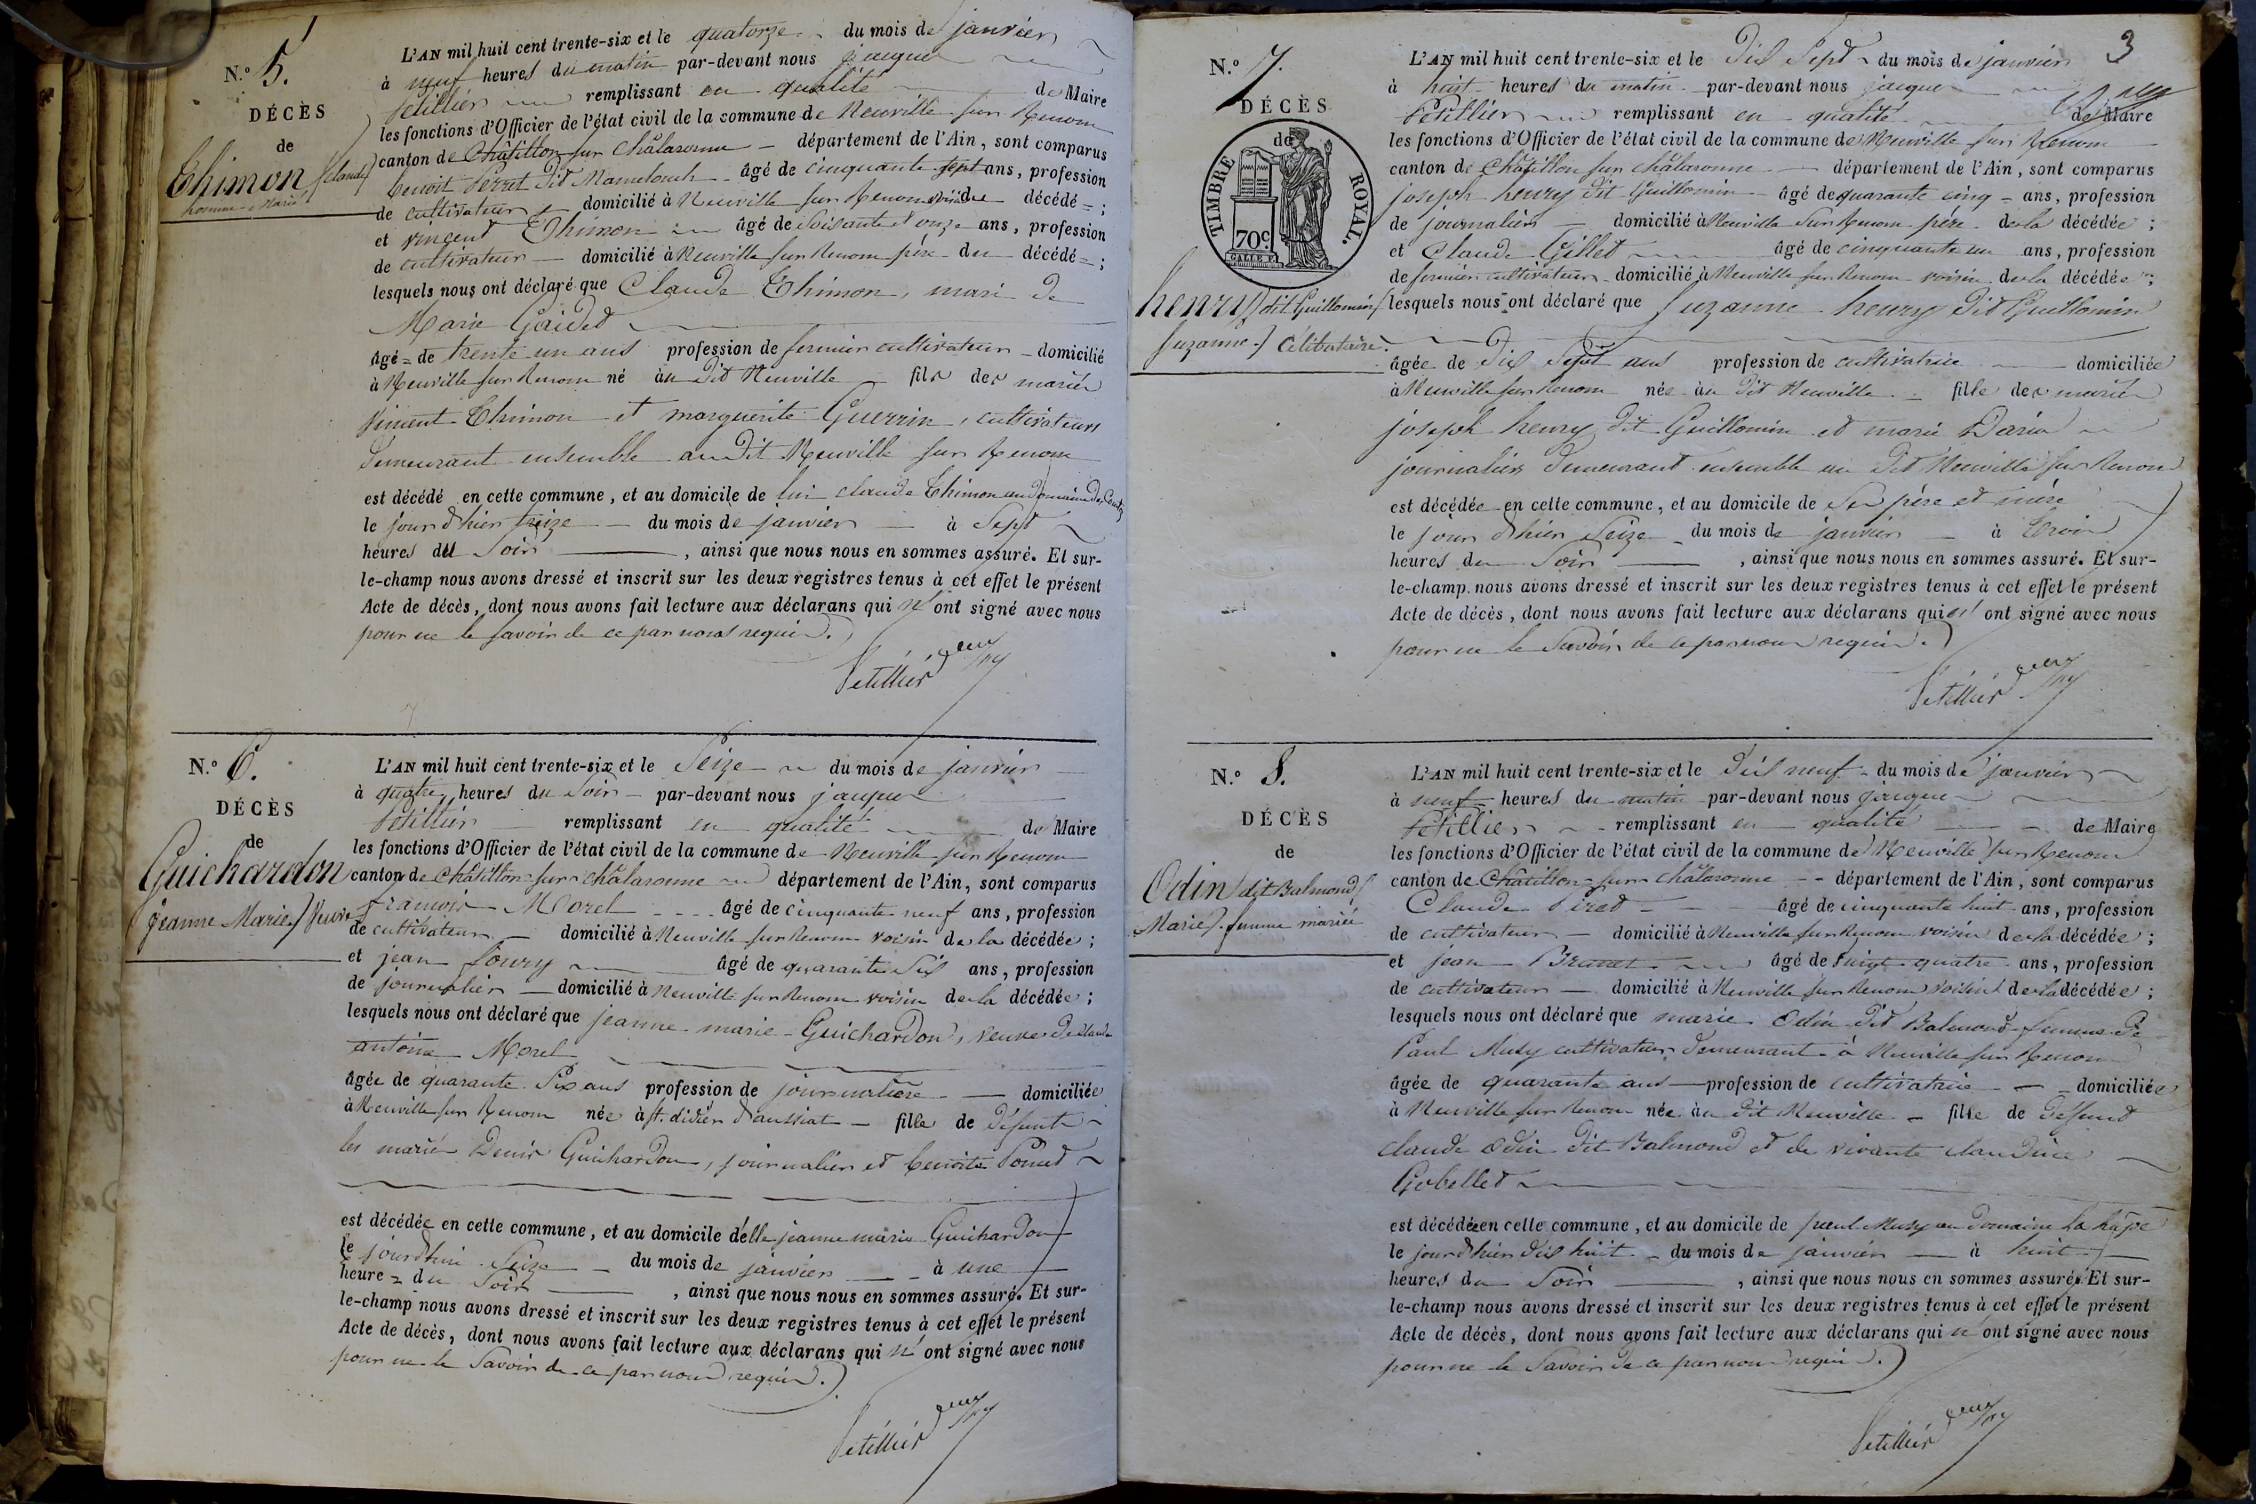 N.º 5.
DÉCÈS
de
Thimon (Claude)
homme marié
L'AN mil huit cent trente-six et le quatorze du mois de janvier
à neuf heures du matin par-devant nous jacques
Petillier remplissant en qualité de Maire
les fonctions d'Officier de l'état civil de la commune de Neuville sur Renom
canton de Châtillon sur Châlaronne département de l'Ain, sont comparus
benoit Perret dit Mamelouck âgé de cinquante sept ans, profession
de cultivateur domicilié à Neuville sur Renom décédé ;
et vincent Thimon âgé de soixante et onze ans, profession
de cultivateur domicilié à Neuville sur Renom père du décédé ;
lesquels nous ont déclaré que Claude Thimon, mari de
Marie Gaidet
âgé de trente un ans profession de fermier cultivateur domicilié
à Neuville sur Renom né au dit Neuville fils des mariés
vincent Thimon et marguerite Guerrin, cultivateurs
demeurant ensemble au dit Neuville sur Renom
est décédé en cette commune, et au domicile de lui claude Thimon au domaine des
le jour d'hier treize du mois de janvier à sept
heures du soir , ainsi que nous nous en sommes assuré. Et sur-
le-champ nous avons dressé et inscrit sur les deux registres tenus à cet effet le présent
Acte de décès, dont nous avons fait lecture aux déclarans qui n'ont signé avec nous
pour ne le savoir de ce par nous requis.
Petillier
N.º 6.
DÉCÈS
de
Guichardon
(jeanne Marie) Veuve
L'AN mil huit cent trente-six et le Seize du mois de janvier
à quatre heures du soir par-devant nous jacques
Petillier remplissant en qualité de Maire
les fonctions d'Officier de l'état civil de la commune de Neuville sur Renom
canton de Châtillon sur Châlaronne département de l'Ain, sont comparus
francois Morel âgé de cinquante neuf ans, profession
de cultivateur domicilié à Neuville sur Renom voisin de la décédée ;
et jean Soury âgé de quarante dix ans, profession
de journalier domicilié à Neuville sur Renom voisin de la décédée ;
lesquels nous ont déclaré que jeanne marie Guichardon, veuve de claude
antoine Morel
âgée de quarante six ans profession de journalière domiciliée
à Neuville sur Renom née à St. didier d'aussiat fille de défunts
les mariés Denis Guichardon, journalier et benoite Poncet
est décédée en cette commune, et au domicile d'elle jeanne marie Guichardon
le jourd'hui Seize du mois de janvier à une
heure du soir , ainsi que nous nous en sommes assuré. Et sur-
le-champ nous avons dressé et inscrit sur les deux registres tenus à cet effet le présent
Acte de décès, dont nous avons fait lecture aux déclarans qui n'ont signé avec nous
pour ne le savoir de ce par nous requis.
Petillier
3
N.º 7.
DÉCÈS
de
TIMBRE ROYAL.
70c.
henry (dit Guillomin)
Suzanne) Célibataire.
L'AN mil huit cent trente-six et le dix Sept du mois de janvier
à huit heures du matin par-devant nous jacques
Petillier remplissant en qualité de Maire
les fonctions d'Officier de l'état civil de la commune de Neuville sur Renom
canton de Châtillon sur Châlaronne département de l'Ain, sont comparus
joseph henry dit Guillomin âgé de quarante cinq ans, profession
de journalier domicilié à Neuville sur Renom père de la décédée ;
et Claude Gillet âgé de cinquante un ans, profession
de fermier cultivateur domicilié à Neuville sur Renom voisin de la décédée ;
lesquels nous ont déclaré que Suzanne henry dit Guillomin
âgée de dix Sept ans profession de cultivatrice domiciliée
à Neuville sur Renom née au dit Neuville fille des mariés
joseph henry dit Guillomin et marie Darin
journaliers demeurant ensemble au dit Neuville sur Renom
est décédée en cette commune, et au domicile de Ses père et mère
le jour d'hier Seize du mois de janvier à trois
heures du soir , ainsi que nous nous en sommes assuré. Et sur-
le-champ nous avons dressé et inscrit sur les deux registres tenus à cet effet le présent
Acte de décès, dont nous avons fait lecture aux déclarans qui n'ont signé avec nous
pour ne le savoir de ce par nous requis.
Petillier
N.º 8.
DÉCÈS
de
Odin (dit Balmond)
Marie) femme mariée
L'AN mil huit cent trente-six et le dix neuf du mois de janvier
à neuf heures du matin par-devant nous jacques
Petillier remplissant en qualité de Maire
les fonctions d'Officier de l'état civil de la commune de Neuville sur Renom
canton de Châtillon sur Châlaronne département de l'Ain, sont comparus
Claude Piret âgé de cinquante huit ans, profession
de cultivateur domicilié à Neuville sur Renom voisin de la décédée ;
et jean Bravet âgé de vingt quatre ans, profession
de cultivateur domicilié à Neuville sur Renom voisin de la décédée ;
lesquels nous ont déclaré que marie Odin dit Balmond femme de
Paul Musy cultivateur demeurant à Neuville sur Renom
âgée de quarante ans profession de cultivatrice domiciliée
à Neuville sur Renom née au dit Neuville fille de défunt
claude Odin dit Balmond et de vivante claudine
Gobellet
est décédée en cette commune, et au domicile de paul Musy au domaine La hâpe
le jour d'hier dix huit du mois de janvier à huit
heures du soir , ainsi que nous nous en sommes assuré. Et sur-
le-champ nous avons dressé et inscrit sur les deux registres tenus à cet effet le présent
Acte de décès, dont nous avons fait lecture aux déclarans qui n'ont signé avec nous
pour ne le savoir de ce par nous requis.
Petillier